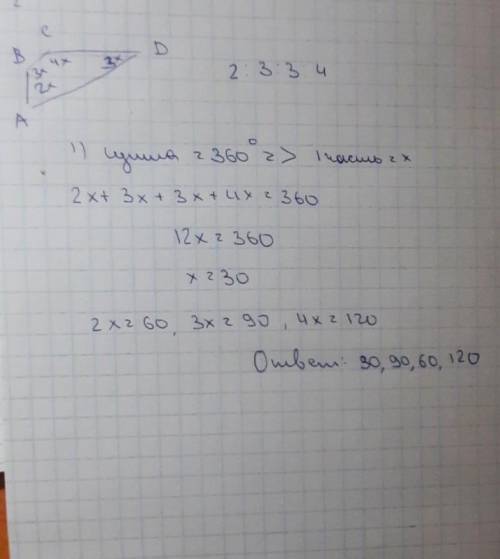 C
B 4x 3x D
3x
2x
A
2 : 3 : 3 4
1) сумма = 360° => 1 часть = x
2x + 3x + 3x + 4x = 360
12x = 360
x = 30
2x = 60, 3x = 90, 4x = 120
Ответ: 90, 90, 60, 120